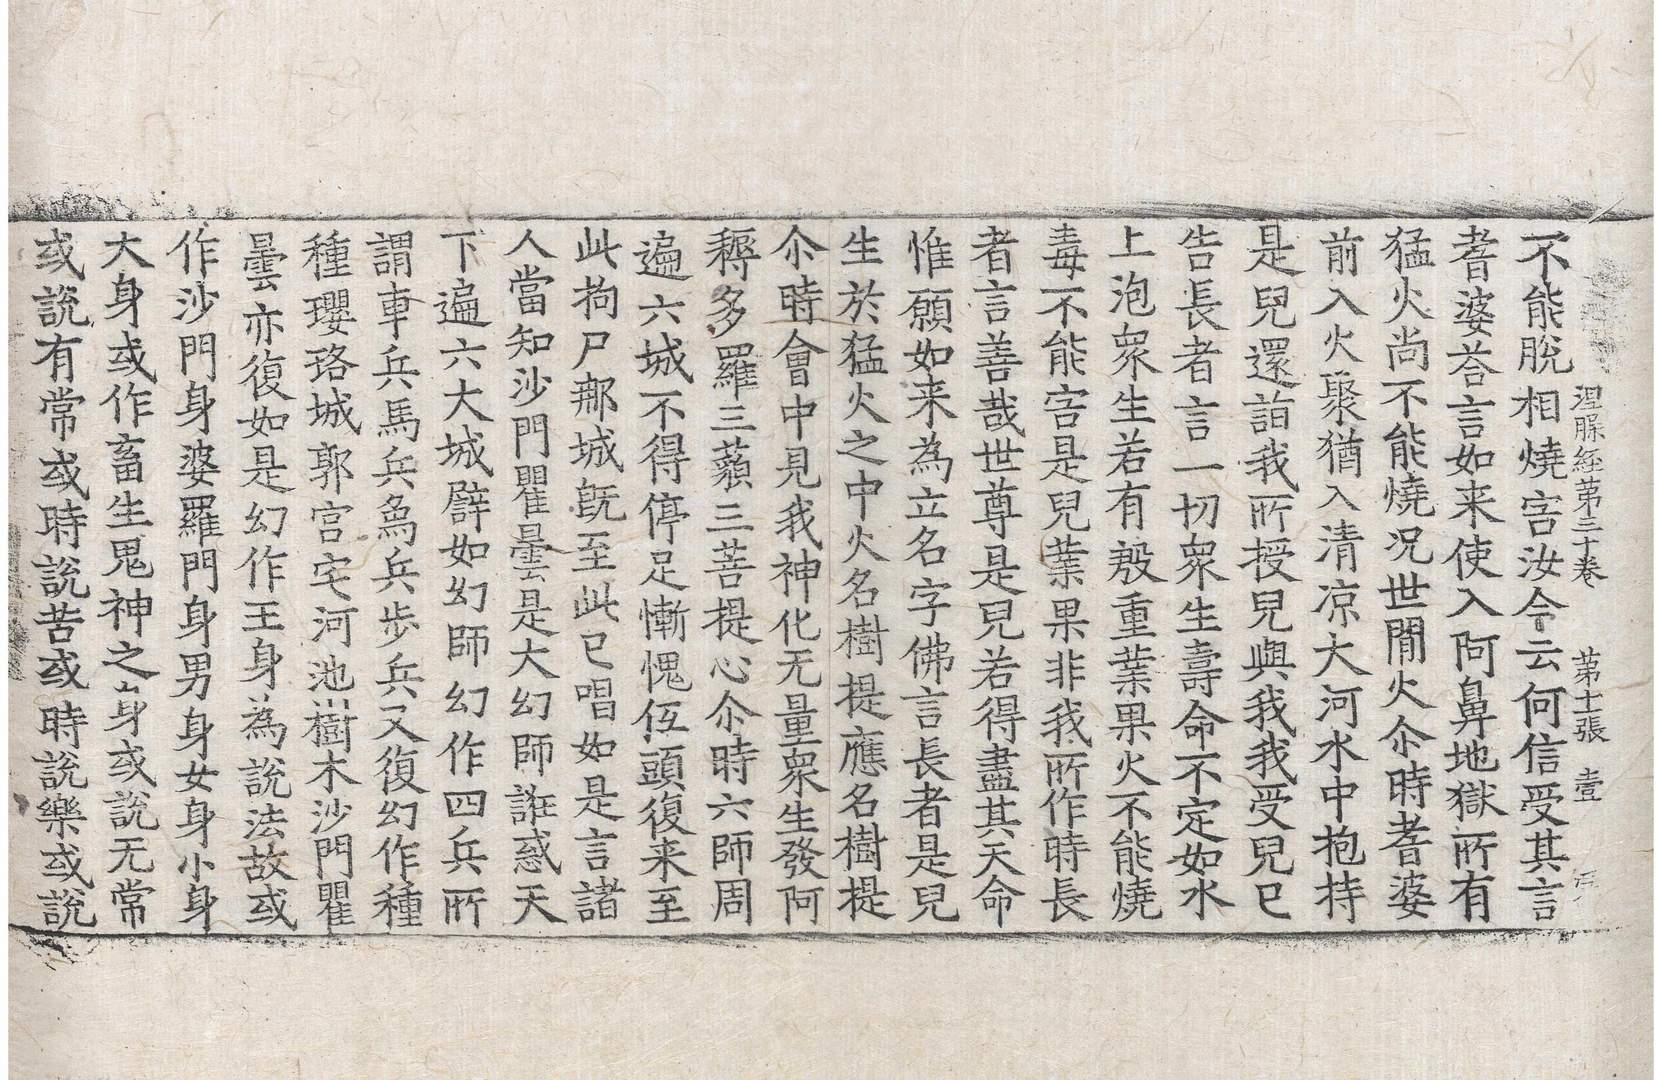 涅脲経苐三十卷　苐十一張　壹
不能脫相燒害汝今云何信受其言
耆婆荅言如来使入阿鼻地獄所有
猛火尚不能燒況世閒火尒時耆婆
前入火聚猶入清涼大河水中抱持
是兒還詣我所授兒與我我受兒已
告長者言一切衆生壽命不定如水
上泡衆生若有殷重業果火不能燒
毒不能害是兒業果非我所作時長
者言善哉世尊是兒若得盡其天命
惟願如来為立名字佛言長者是兒
生於猛火之中火名樹提應名樹提
尒時會中見我神化无量衆生發阿
耨多羅三藐三菩提心尒時六師周
遍六城不得停足慚愧低頭復来至
此拘尸那城旣至此已唱如是言諸
人當知沙門瞿曇是大幻師誑惑天
下遍六大城譬如幻師幻作四兵所
謂車兵馬兵象兵步兵又復幻作種
種瓔珞城郭宮宅河池樹木沙門瞿
曇亦復如是幻作王身為說法故或
作沙門身婆羅門身男身女身小身
大身或作畜生鬼神之身或說无常
或說有常或時說苦或時說樂或說